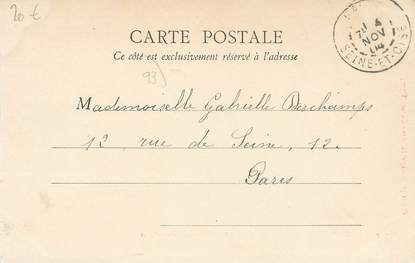 20 €
CARTE POSTALE
Ce côté est exclusivement réservé à l'adresse
93)
NOV
SEINE-ET-OISE
Mademoiselle Gabrielle Deschamps
12 rue de Seine, 12.
Paris